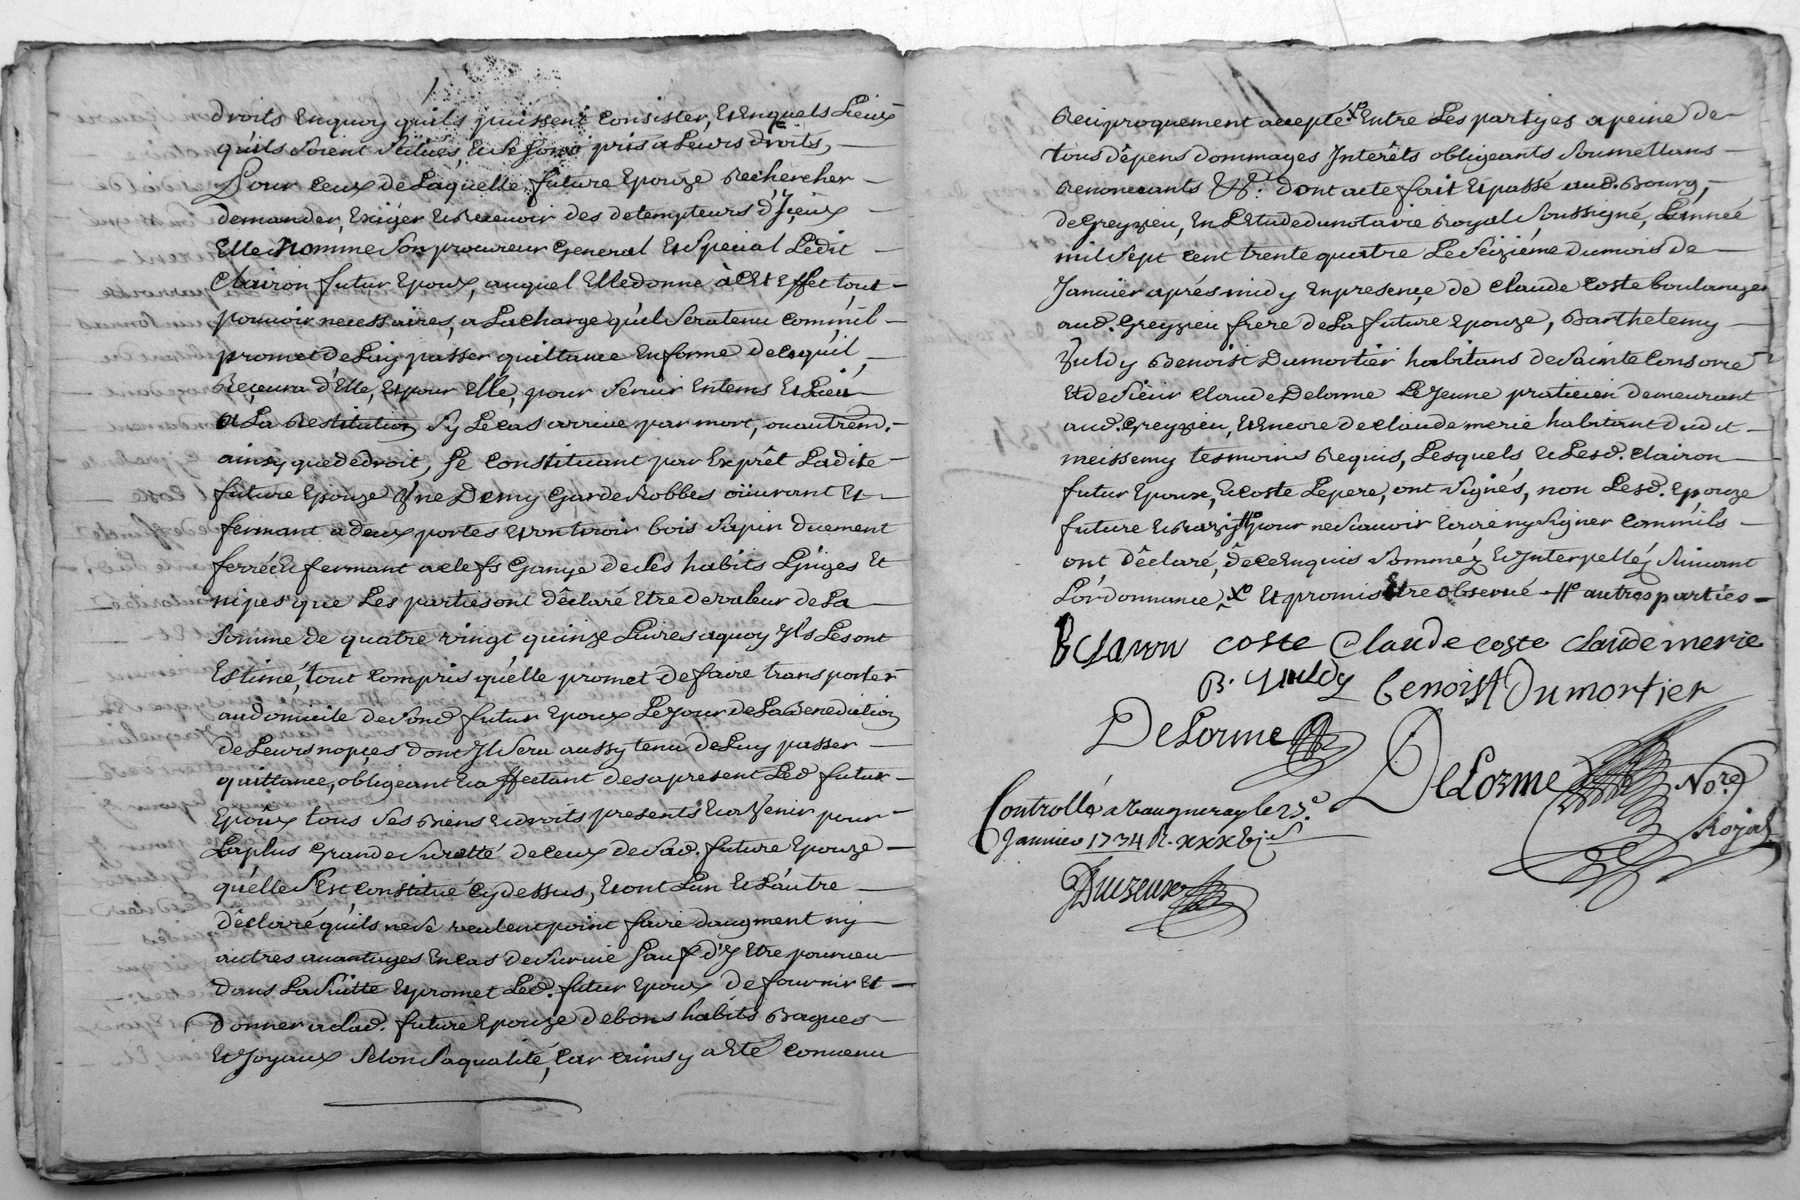 droits Enquoy quils puissent Consister, et Enquels Lieux
quils soient situés, et se
pris a Leurs droits,
Pour Ceux de Laquelle future Epouze Rechercher
demander, Exiger et Recevoir des detempteurs d'Iceux
Elle Nomme son procureur General et special Ledit
Clairon futur Epoux, auquel Elle donne à Cet Effet tout
pouvoir necessaires, a La Charge qu'il sera tenu Comm'il
promet de Luy passer quittance En forme de Ce quil
Recevra d'Elle, et pour Elle, pour servir En tems et Lieu
a La Restitution sy Le Cas arrive par mort, ou autrem.
ainsy que de droit, se Constituant par Exprêt Ladite
future Epouze Une Demy Garde Robbes oüvrant et
fermant a deux portes et un tiroir bois sapin duement
ferré et fermant a clefs Garnye de ses habits Linges et
nipes que Les parties ont dêclaré Etre de valeur de La
somme de quatre vingt quinze Livres a quoy Ils Les ont
Estimé, tout Compris qu'elle promet de faire transporter
au domicile de sond. futur Epoux Le Jour de La Benediction
de Leurs nopçes dont Il sera aussy tenu de Luy passer
quittance, obligeant et affectant des a present Led. futur
Epoux tous ses Biens et droits presents et a Venir pour
La plus Grande suretté de Ceux de sad. future Epouze
qu'elle s'Est Constitué Cy dessus, et ont L'un et L'autre
dêclaré qu'ils ne se veulent point faire d'augment ny
autres avantages En Cas de survie sauf d'y Etre pourveu
dans La suitte et promet Led. futur Epoux de fournir et
Donner a Lad. future Epouze de bons habits Bagues
et Joyaux selon sa qualité, Car ainsy a Eté Convenu
Reciproquement accepté x Entre Les partyes a peine de
tous dêpens dommages Interêts obligeants soumettans
Renonceants &c. dont acte fait et passé aud. Bourg
de Greyzieu, En L'Etude du notaire Royal soussigné, L'année
mil sept cent trente quatre Le seizième du mois de
Janvier aprés midy En presençe de Claude Coste boulanger
aud. Greyzieu frere de La future Epouze, Barthelemy
Juldy Benoist Dumortier habitans de Sainte Consorce
et de sieur Claude Delorme Le Jeune praticien demeurant
aud. Greyzieu, et Encore de Claude merie habitant dudit
meissemy tesmoins Requis, Lesquels et Lesd. Clairon
futur Epoux, et Coste Le pere, ont signés, non Lesd. Epouze
future et
pour ne scavoir Ecrire ny signer Comm'ils
ont dêclaré, de Ce Enquis sommez et Interpellez suivant
L'ordonnance, x et promis Etre observé # autres parties
B Clairon Coste Claude coste claude merie
B. Juldy benoist Dumortier
DeLorme
DeLorme No.re
Royal
Controllé a Vaugneray le 25.e
Janvier 1734 R.